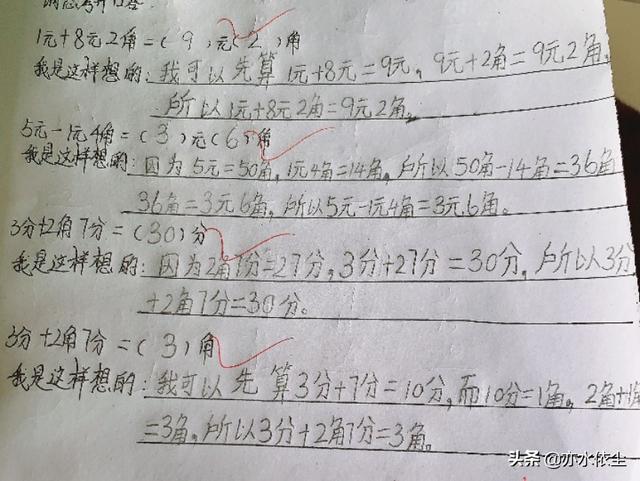 1元+8元2角=(9)元(2)角
我是这样想的:我可以先算1元+8元=9元,9元+2角=9元2角,
所以1元+8元2角=9元2角。
5元-1元4角=(3)元(6)角
我是这样想的:因为5元=50角,1元4角=14角,所以50角-14角=36角
36角=3元6角,所以5元-1元4角=3元6角。
3分+2角7分=(30)分
我是这样想的:因为2角7分=27分,3分+27分=30分,所以3分
+2角7分=30分。
3分+2角7分=(3)角
我是这样想的:我可以先算3分+7分=10分,而10分=1角。2角+1角
=3角,所以3分+2角7分=3角。
头条@亦水依生